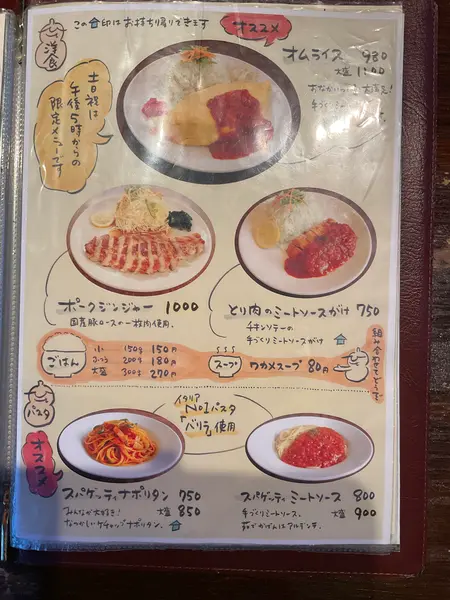 この 印はお持ち帰りできます
洋食
オススメ
オムライス 930
大盛 1100
土日祝は
午後5時からの
限定メニューです
ポークジンジャー 1000
国産豚ロースの一枚肉使用。
とり肉のミートソースがけ 750
チキンソテーの
手づくりミートソースがけ
ごはん
小 150g 150円
ふつう 200g 180円
大盛 300g 270円
スープ
ワカメスープ 80円
組み合わせてどうぞ
パスタ
オススメ
イタリア
No.1パスタ
「バリラ」使用
スパゲッティナポリタン 750
みんな大好き! 大盛 850
なつかしいケチャップナポリタン。
スパゲッティミートソース 800
手づくりミートソース。 大盛 900
茹でかげんはアルデンテ。